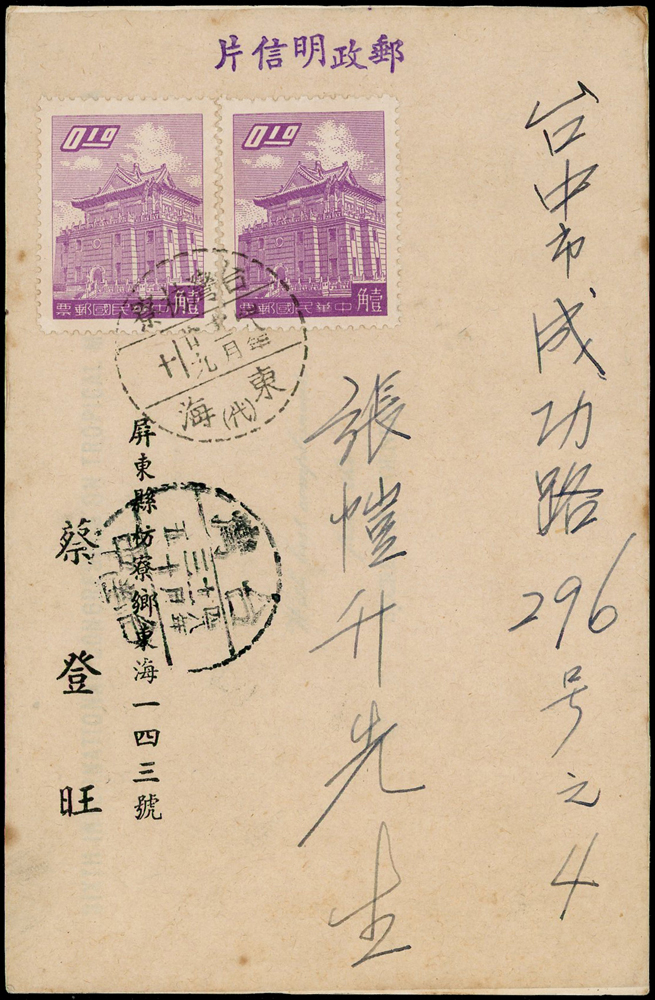 郵政明信片
0.10
中華民國郵票
壹角
0.10
中華民國郵票
壹角
台灣枋寮
東海
(代)
台中市成功路296号之4
張愷升先生
屏東縣枋寮鄉東海一四三號
蔡登旺